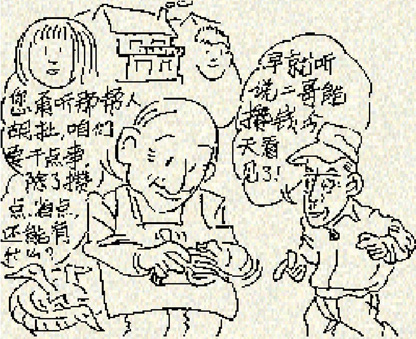 您甭听那帮人
胡扯,咱们
要干点事,
除了攒
点,省点,
还能有
什么?
早就听
说二哥能
攒钱,今
天看
见了!